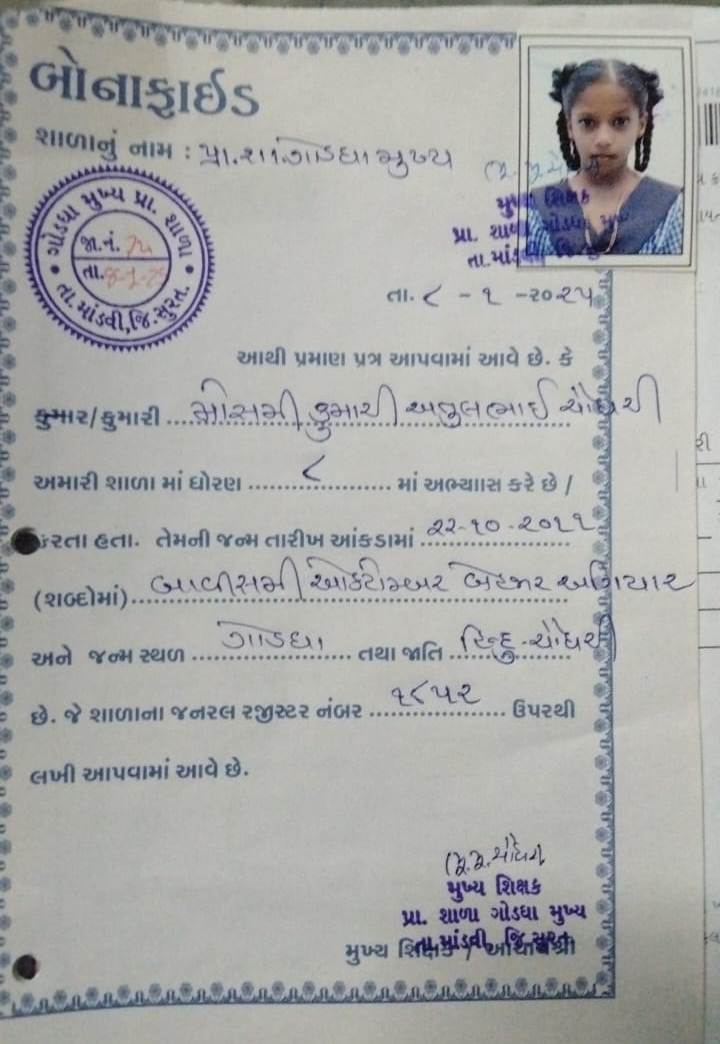 બોનાફાઈડ
શાળાનું નામ : પ્રા.શા.ગોડધા મુખ્ય
મુખ્ય શિક્ષક
પ્રા. શાળા ગોડધા મુખ્ય
તા.માંડવી, જિ.સુરત
ગોડધા મુખ્ય પ્રા. શાળા
જા.નં.
તા.
તા. માંડવી, જિ. સુરત.
તા. ૮ - ૧ - ૨૦૨૫
આથી પ્રમાણ પત્ર આપવામાં આવે છે. કે
કુમાર/કુમારી ... મોસમી કુમારી અતુલભાઈ ચૌધરી
અમારી શાળા માં ધોરણ ... ૮ ... માં અભ્યાસ કરે છે /
કરતા હતા. તેમની જન્મ તારીખ આંકડામાં ... ૨૨-૧૦-૨૦૧૧
(શબ્દોમાં) ... બાવીસમી ઓકટોમ્બર બેહજાર અગિયાર
અને જન્મ સ્થળ ... ગોડધા ... તથા જાતિ ... હિન્દુ-ચૌધરી
છે. જે શાળાના જનરલ રજીસ્ટર નંબર ... ૧૮૫૨ ... ઉપરથી
લખી આપવામાં આવે છે.
મુખ્ય શિક્ષક
પ્રા. શાળા ગોડધા મુખ્ય
તા.માંડવી, જિ.સુરત
મુખ્ય શિક્ષક / આચાર્યશ્રી